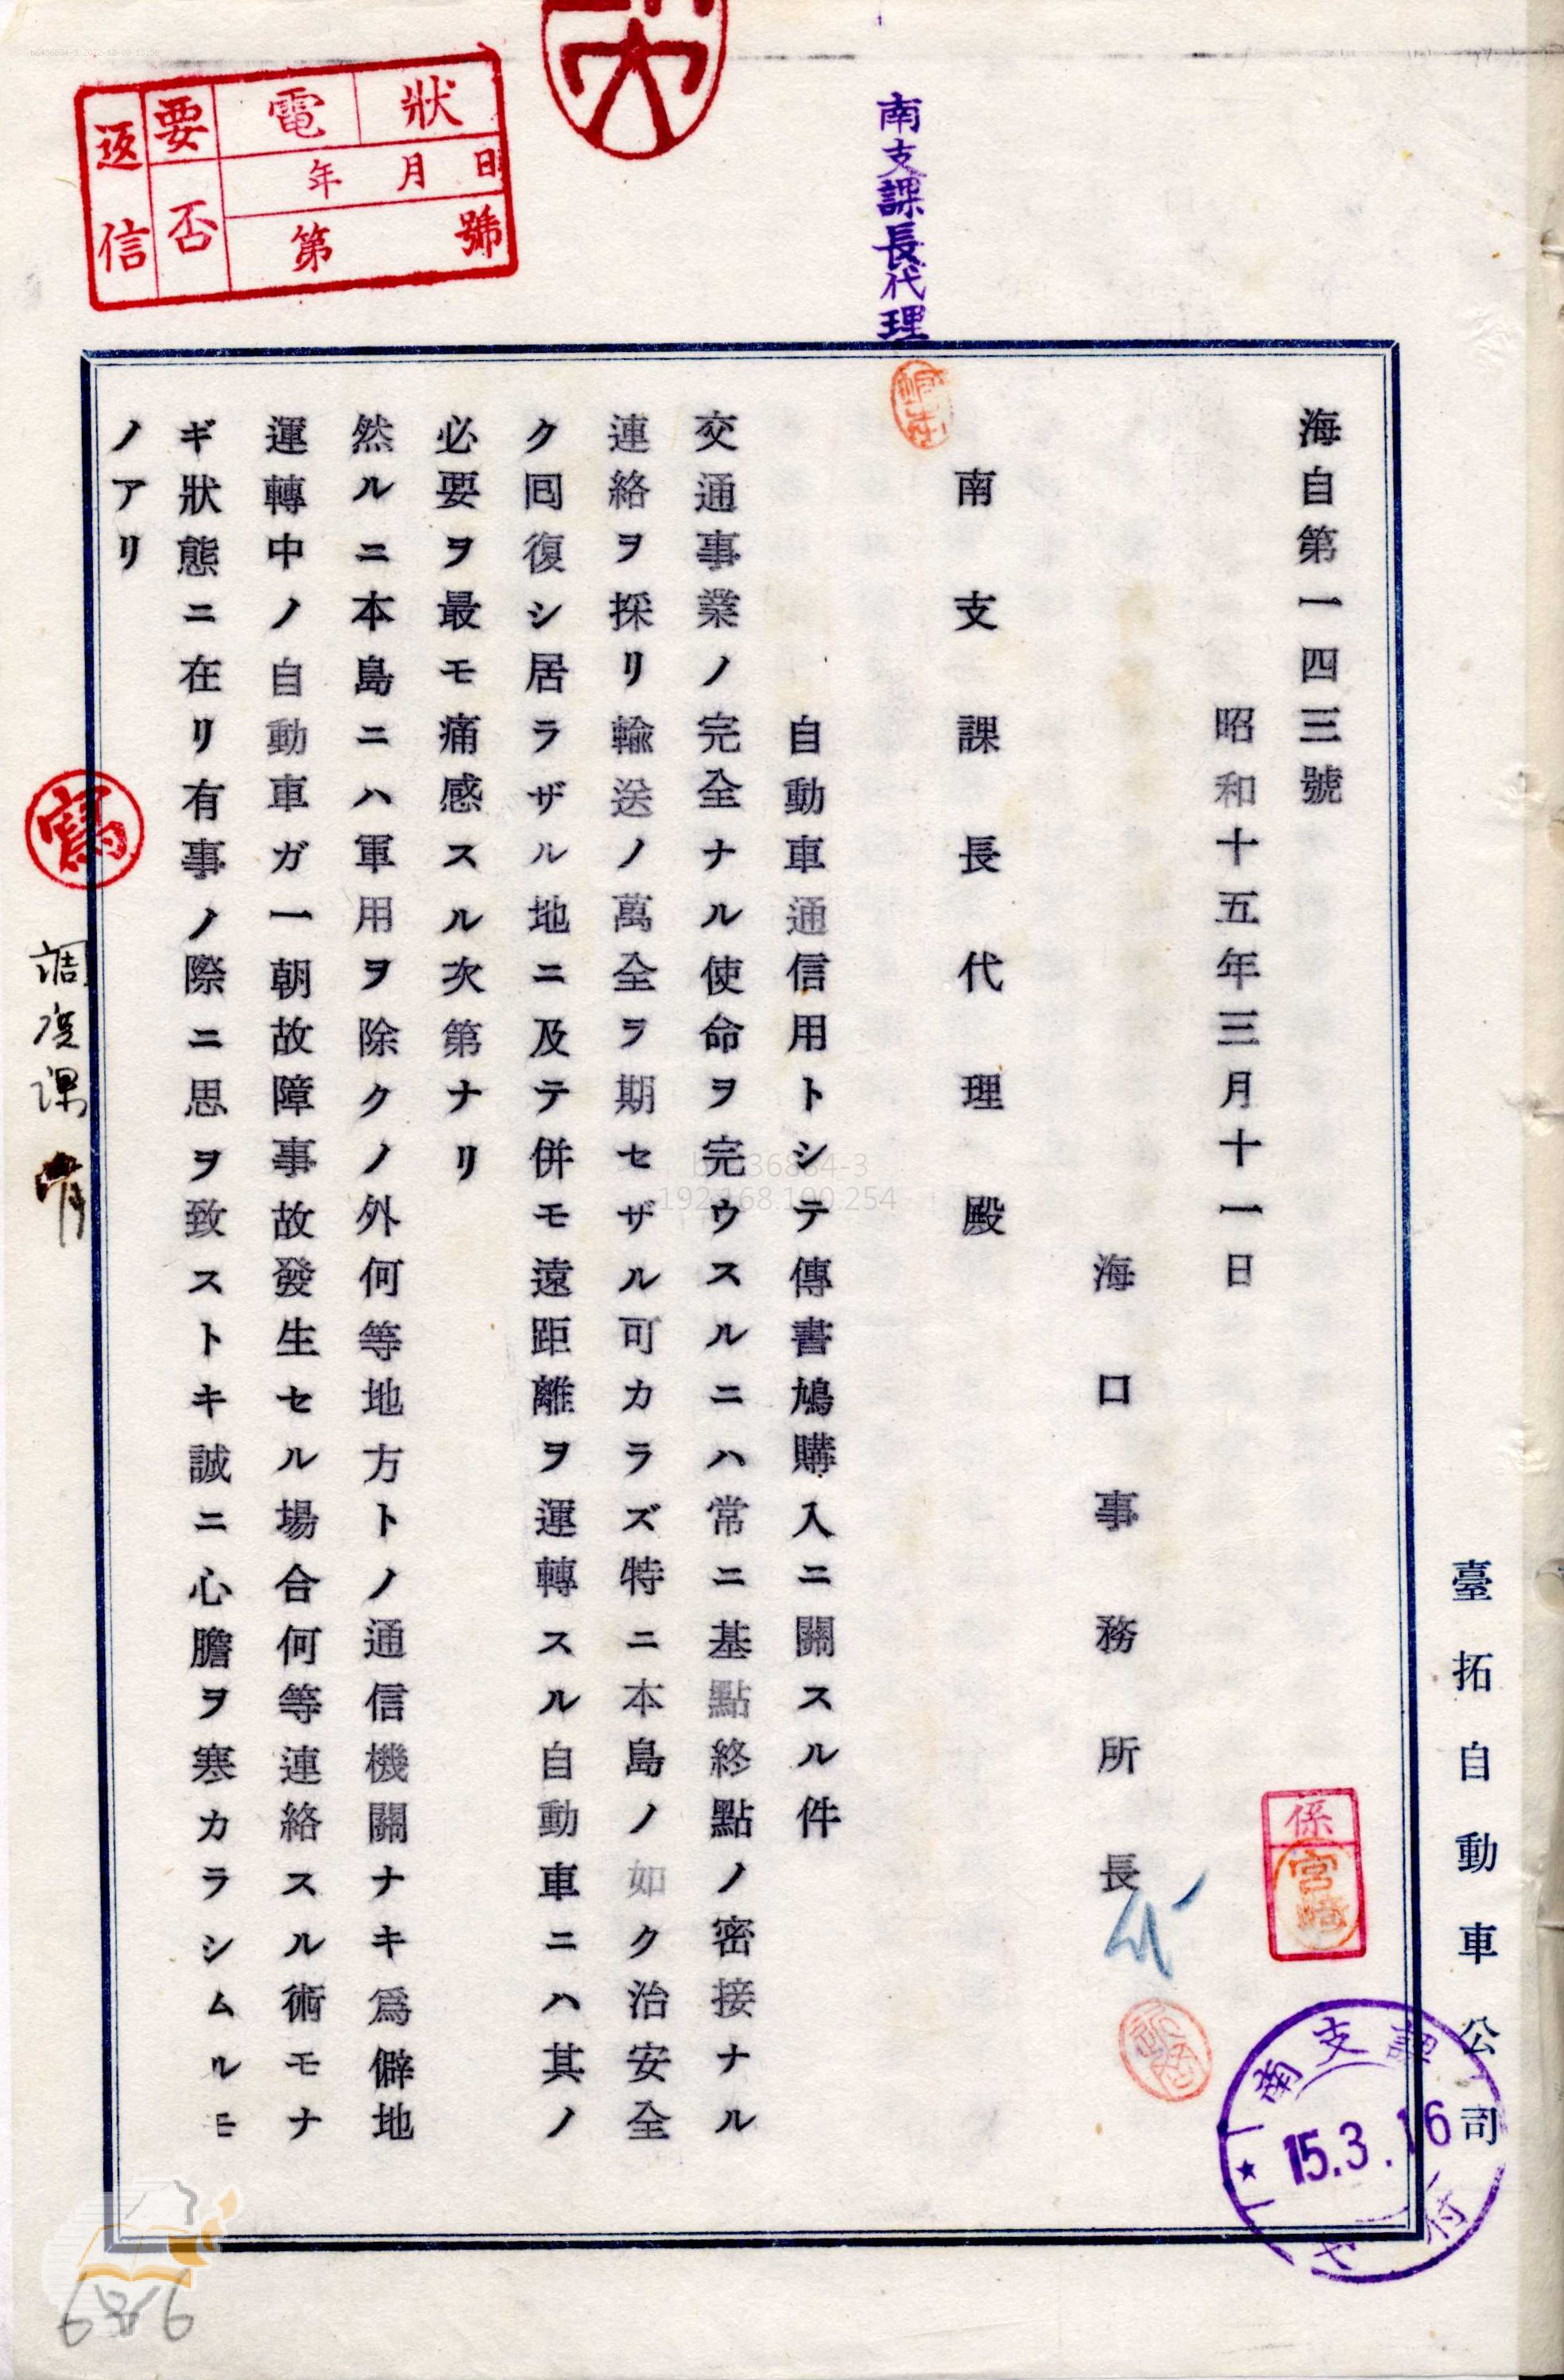 臺拓自動車公司
海自第一四三號
昭和十五年三月十一日
海口事務所長
南支課長代理殿
自動車通信用トシテ傳書鳩購入ニ關スル件
交通事業ノ完全ナル使命ヲ完ウスルニハ常ニ基點終點ノ密接ナル
連絡ヲ採リ輸送ノ萬全ヲ期セザル可カラズ特ニ本島ノ如ク治安全
ク囘復シ居ラザル地ニ及テ併モ遠距離ヲ運轉スル自動車ニハ其ノ
必要ヲ最モ痛感スル次第ナリ
然ルニ本島ニハ軍用ヲ除クノ外何等地方トノ通信機關ナキ爲僻地
運轉中ノ自動車ガ一朝故障事故發生セル場合何等連絡スル術モナ
ギ狀態ニ在リ有事ノ際ニ思ヲ致ストキ誠ニ心膽ヲ寒カラシムルモ
ノアリ
南支課長代理
狀電
年月日
第號
要否
返信
寫
調度課
係
宮崎
南支課
15.3.16
b0436884-3
192.168.100.254